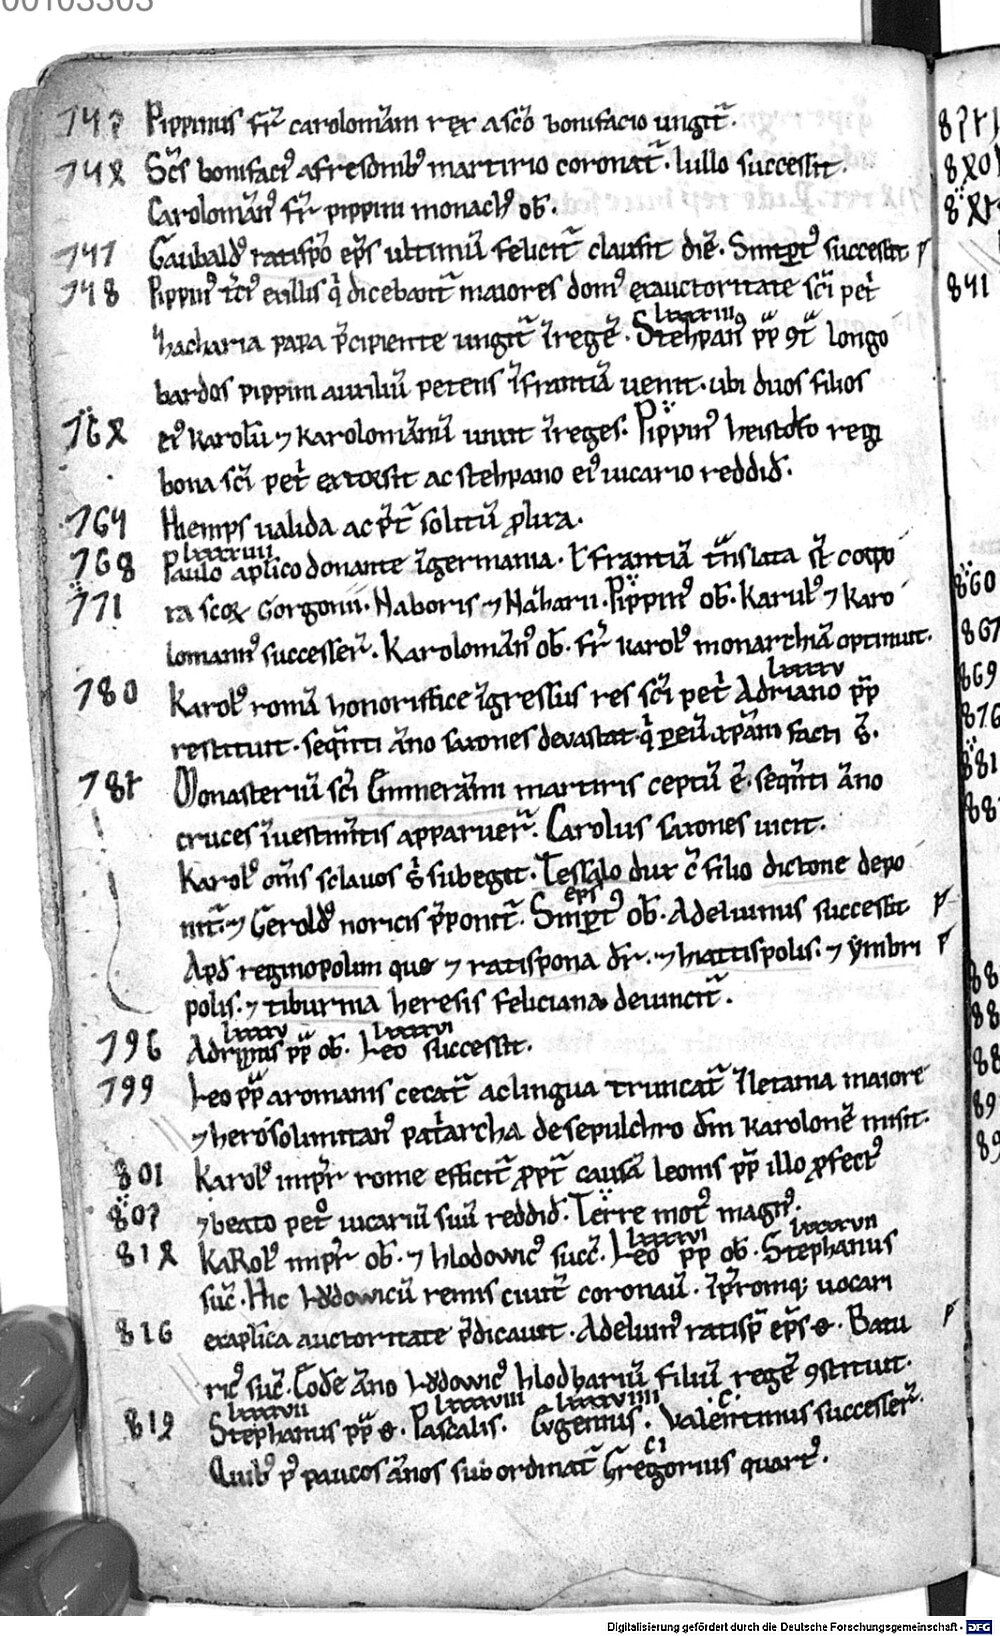 00103303
747 Pippinus fr̄ carolomān rex a sc̄o bonifacio ungit̄.
74X Sc̄s bonifaci᷒ afresonib᷒ martirio coronat̄. lullo successit.
Caroloman᷒ fr̄ pippini monach᷒ ob̄.
747 Gaubald᷒ ratisp̄o ep̄s ultimū felicit̄ clausit diē. Sintp̄t᷒ successit p
748 Pippin᷒ exillis q̄ dicebant̄ maiores dom᷒ exauctoritate sc̄i pet̄
Zacharia papa p̄cipiente ungit̄ ī regē. Stehpan᷒ pp̄ 9t̄ longo
lxxxxiii
bardos pippini auxiliū petens ī franciā uenit. ubi duos filios
76X ei᷒ karolū ⁊ karolomānū unxit ī reges. Pippin᷒ heistolfo regi
bona sc̄i pet̄ extorsit ac stehpano ei᷒ uicario reddid̄.
764 Hiemps ualida ac p̄t̄ solitū plixa.
lxxxxiiii
768 Paulo ap̄lico donante ī germania. ł franciā t̄nslata st̄ corpo
771 ra sc̄oꝝ Gorgonii. Naboris ⁊ Nazarii. Pippin᷒ ob̄. Karul᷒ ⁊ karo
lomann᷒ successer̄. Karoloman᷒ ob̄. fr̄ karol᷒ monarchiā optinuit.
lxxxxv
780 Karol᷒ romā honorifice īgressus res sc̄i pet̄ Adriano pp̄
restituit. sequn̄ti ān̄o saxones deuastat q̄ p eū xp̄iani facti s̄.
787 Monasteriū sc̄i Emmerāmi martiris ceptū ē. sequn̄ti ān̄o
cruces ī uestimn̄tis apparuer̄. Carolus saxones uicit.
Karol᷒ om̄s sclauos s̄ subegit. Tessalo dux c̄ filio dictone depo
nit̄. ⁊ Gerold᷒ noricis p̄ponit̄. Sintp̄t᷒ ep̄s ob̄. Adelwinus successit p
Apd̄ reginopolim que ⁊ ratispona dr̄. ⁊ hiattispolis. ⁊ ymbri p
polis. ⁊ tiburnia heresis feliciana deuincit̄.
lxxxxv lxxxxvi
796 Adrianus pp̄ ob̄. Leo successit.
799 Leo pp̄ a romanis cecat̄ ac lingua truncat̄ ī letania maiore
⁊ herosolimitan᷒ pat̄archa de sepulchro dn̄i karolo uenē misit.
801 Karol᷒ imp̄r rome efficit̄ ppt̄ causā leonis pp̄ illo pfect᷒
807 ⁊ beato pet᷒ uicariū suū reddid̄. Terre mot᷒ magn᷒.
lxxxxvi lxxxxvii
81X Karol᷒ imp̄r ob̄. ⁊ hlodowic᷒ succ̄. Leo pp̄ ob̄. Stephanus
suc̄. Hic Lodowicū remis ciuit̄ coronau̅. īp̄romq; uocari
816 ex ap̄lica auctoritate p̄dicauit. Adelwin᷒ ratisp̄ ep̄s o. Batu p
ric᷒ suc̄. Eodē ān̄o Lodowic᷒ hlodhariū filiū regē 9stituit.
lxxxxvii lxxxxviii lxxxxviiii c
819 Stephanus pp̄ o. Pascalis. Eugenius. Valentinus successer̄.
ci
Quib᷒ p᷒ paucos ān̄os subordinat̄ Gregorius quart᷒.
841
860
867
869
876
881
Digitalisierung gefördert durch die Deutsche Forschungsgemeinschaft - DFG